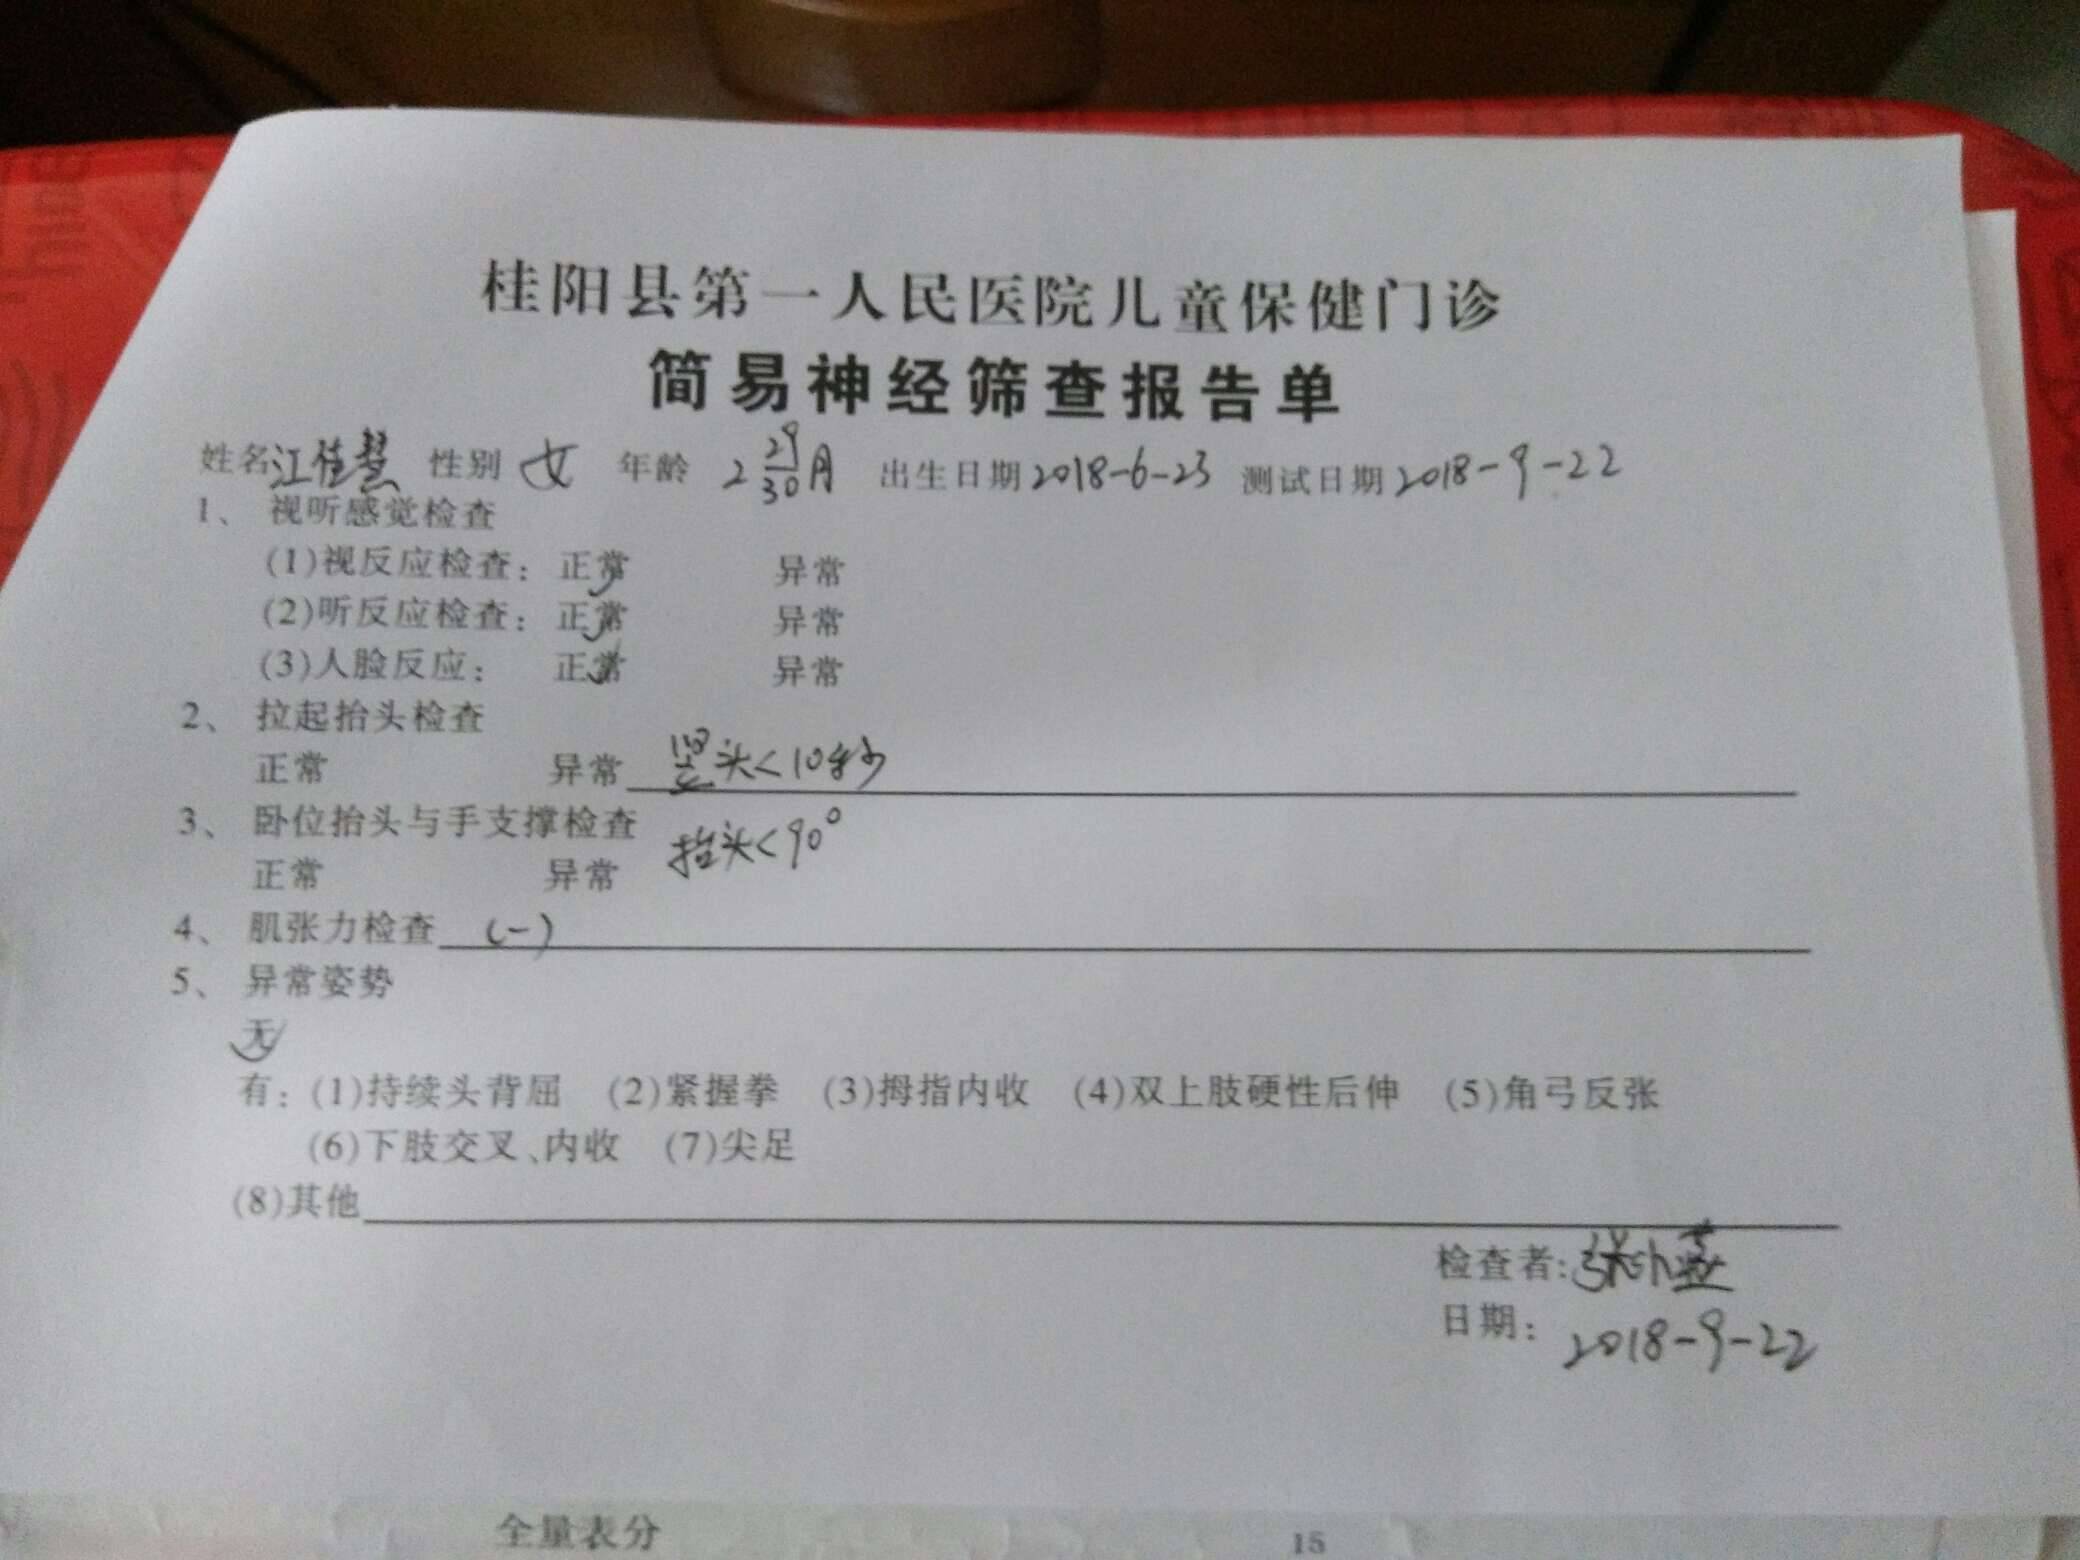 桂阳县第一人民医院儿童保健门诊
简易神经筛查报告单
姓名江佳慧 性别 女 年龄 2 29/30月 出生日期2018-6-23 测试日期2018-9-22
1、 视听感觉检查
(1)视反应检查: 正常 异常
(2)听反应检查: 正常 异常
(3)人脸反应: 正常 异常
2、 拉起抬头检查
正常 异常 竖头<10秒
3、 卧位抬头与手支撑检查
正常 异常 抬头<90°
4、 肌张力检查 (-)
5、 异常姿势
无
有: (1)持续头背屈 (2)紧握拳 (3)拇指内收 (4)双上肢硬性后伸 (5)角弓反张
(6)下肢交叉、内收 (7)尖足
(8)其他
检查者:张小燕
日期: 2018-9-22
全量表分 15